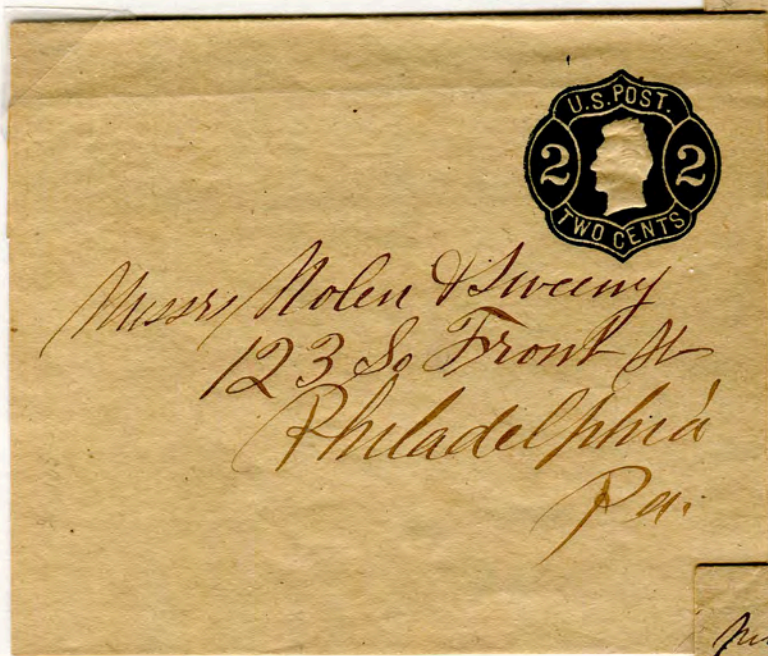 U.S. POST.
2 2
TWO CENTS
Messrs Nolen & Sweeny
123 So Front St
Philadelphia
Pa.